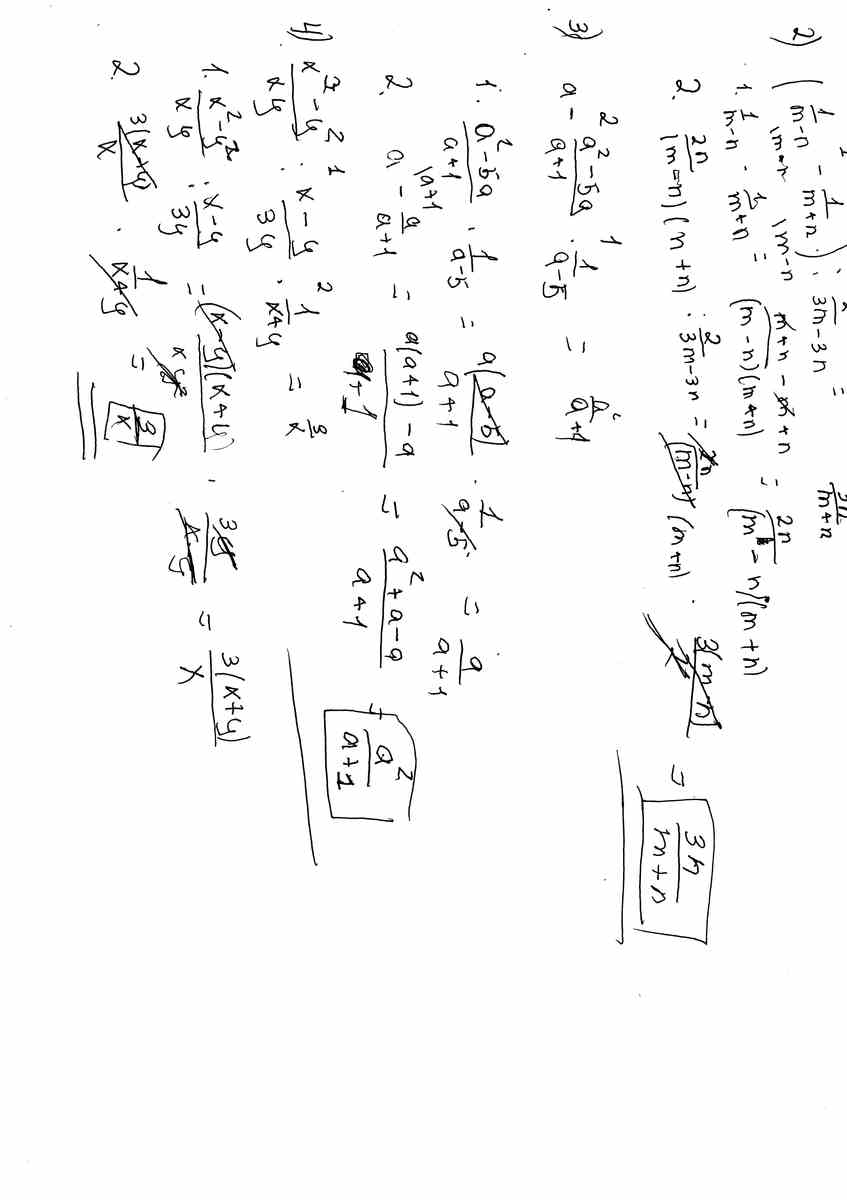 2) ( 1/(m-n) - 1/(m+n) ) : 2/(3m-3n) = 3n/(m+n)
1. 1/(m-n) - 1/(m+n) = (m+n-m+n)/((m-n)(m+n)) = 2n/((m-n)(m+n))
2. 2n/((m-n)(m+n)) : 2/(3m-3n) = 2n/((m-n)(m+n)) · 3(m-n)/2 = 3n/(m+n)
3) a - (a²-5a)/(a+1) · 1/(a-5) = a²/(a+1)
1. (a²-5a)/(a+1) · 1/(a-5) = a(a-5)/(a+1) · 1/(a-5) = a/(a+1)
2. a - a/(a+1) = (a(a+1)-a)/(a+1) = (a²+a-a)/(a+1) = a²/(a+1)
4) (x²-y²)/(xy) : (x-y)/(3y) · 1/(x+y) = 3/x
1. (x²-y²)/(xy) : (x-y)/(3y) = (x-y)(x+y)/(xy) · 3y/(x-y) = 3(x+y)/x
2. 3(x+y)/x · 1/(x+y) = 3/x